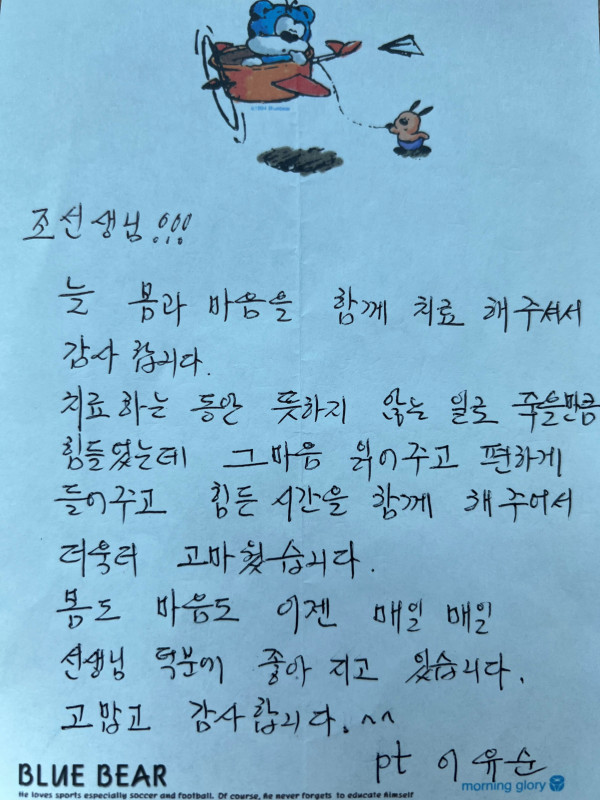 조선생님!!!
늘 몸과 마음을 함께 치료 해주셔서
감사 합니다.
치료 하는 동안 뜻하지 않는 일로 죽을만큼
힘들었는데 그마음 읽어주고 편하게
들어주고 힘든 시간을 함께 해주어서
더욱더 고마웠습니다.
몸도 마음도 이젠 매일 매일
선생님 덕분에 좋아 지고 있습니다.
고맙고 감사합니다. ^^
pt 이유순
BLUE BEAR
He loves sports especially soccer and football. Of course, he never forgets to educate himself
morning glory